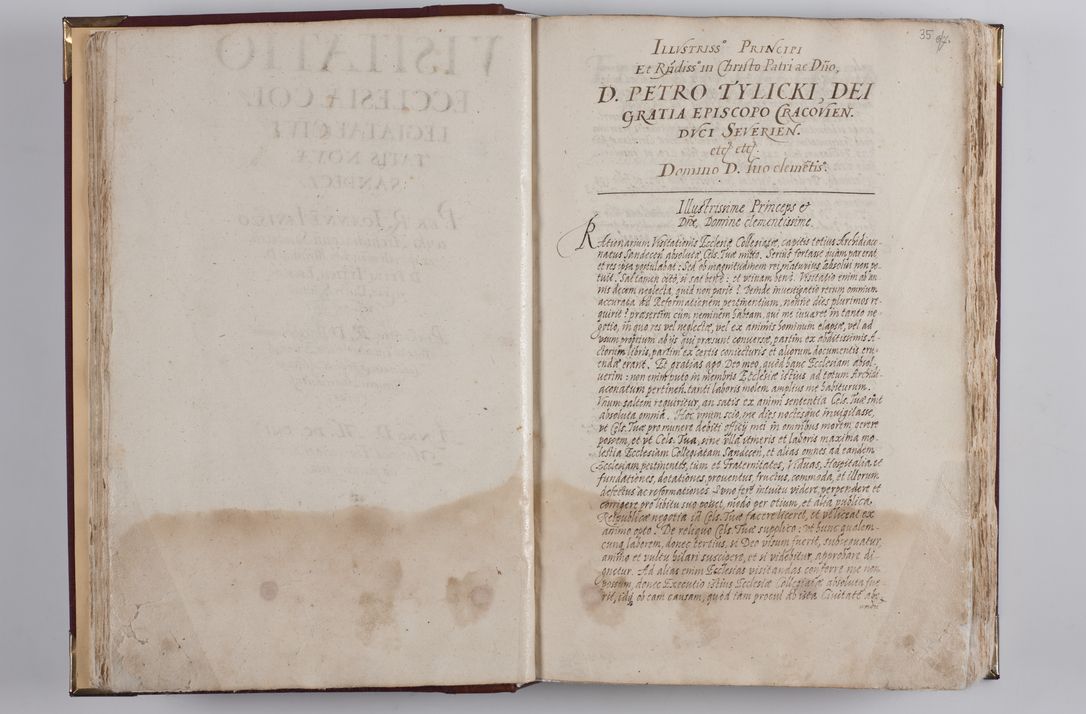 35
Illvstriss° Principi
Et Rṽdiss° in Christo Patri ac Dño,
D. PETRO TYLICKI, DEI
GRATIA EPISCOPO CRACOVIEN.
DVCI SEVERIEN.
etc etc.
Domino D. suo clemẽtis°.
Illustrissime Princeps et
Dñe, Domine clementissime.
RAtionarium Visitationis Ecclesiæ Collegiatæ, capitis totius Archidiaco-
natus Sandecen̄ absolutæ Cels. Tuæ mitto. Serius fortasse quàm par erat
et res ipsa postulabat: Sed ob magnitudinem rei maturius absolui non po-
tuit. Sat tamen citò, si sat benè: et vtinam benè. Visitatio enim ab an-
nis decem neglecta, quid non parit? Deinde inuestigatio rerum omnium
accurata ad Reformationem pertinentium, nonne dies plurimos re-
quirit? præsertim cùm neminem habeam, qui me iuuaret in tanto ne-
gotio, in quo res vel neglectæ, vel ex animis hominum elapsæ, vel ad
vsum proprium ab ijs qui præsunt conuersæ, partim ex abditissimis A-
ctorum libris, partim ex certis coniecturis et aliorum documentis eru-
endæ erant. Et gratias ago Deo meo, quòd hanc Ecclesiam absol-
uerim: non enim puto in membris Ecclesiæ istius ad totum Archidi-
aconatum pertinen. tanti laboris molem amplius me habiturum.
Vnum saltem requiritur, an satis ex animi sententia Cels. Tuæ sint
absoluta omnia. Hoc vnum scio, me dies noctesque inuigilasse,
vt Cels. Tuæ pro munere debiti officij mei in omnibus morem gerere
possem, et vt Cels. Tua, sine vlla itineris et laboris maxima mo-
lestia Ecclesiam Collegiatam Sandecen̄, et alias omnes ad eandem
Ecclesiam pertinentes, tum et Fraternitates, Hospitalia, et
fundationes, dotationes, prouentus, fructus, commoda, et illorum
defectus ac reformationes vno ferè intuitu videre, perpendere et
corrigere pro libitu suo posset, modò per otium, et alia publica
Reipublicæ negotia id Cels. Tuæ facere liceret, et vt liceat ex
animo opto. De reliquo Cels. Tuæ supplico: vt hunc qualem-
cunq. laborem, donec tertius, si Deo visum fuerit, subsequatur,
animo et vultu hilari suscipere, et si videbitur approbare di-
gnetur. Ad alias enim Ecclesias visitandas conferre me non
possum, donec Executio istius Ecclesiæ Collegiatæ absoluta fue-
rit, idq. ob eam causam, quòd tam procul ab ista Ciuitate abs-